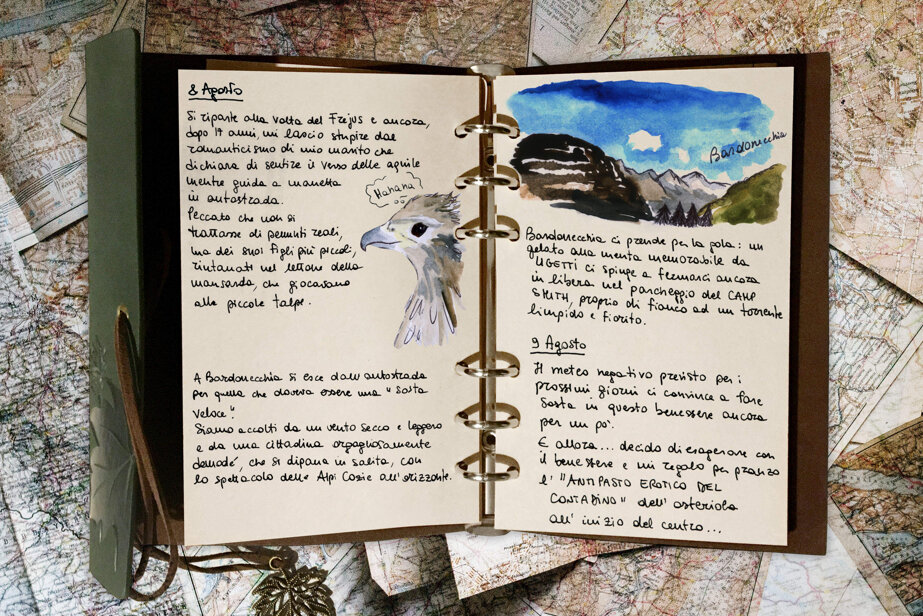 8 Agosto
Si riparte alla volta del Frejus e ancora,
dopo 19 anni, mi lascio stupire dal
romanticismo di mio marito che
dichiara di sentire il verso delle aquile
mentre guida a manetta
in autostrada.
Peccato che non si
trattasse di pennuti reali,
ma dei suoi figli più piccoli,
rintanati nel lettone della
mansarda, che giocavano
alle piccole talpe.
Hahaha
A Bardonecchia si esce dall'autostrada
per quella che doveva essere una "sosta
veloce".
Siamo accolti da un vento secco e leggero
e da una cittadina orgogliosamente
demodé, che si dipana in salita, con
lo spettacolo delle Alpi Cozie all'orizzonte.
Bardonecchia
Bardonecchia ci prende per la gola: un
gelato alla menta memorabile da
UGETTI ci spinge a fermarci ancora
in libera nel parcheggio del CAMP
SMITH, proprio di fianco ad un torrente
limpido e fiorito.
9 Agosto
Il meteo negativo previsto per i
prossimi giorni ci convince a fare
sosta in questo benessere ancora
per un po'.
E allora... decido di esagerare con
il benessere e mi regalo per pranzo
l' "ANTIPASTO EROTICO DEL
CONTADINO" dell'osteriola
all'inizio del centro...